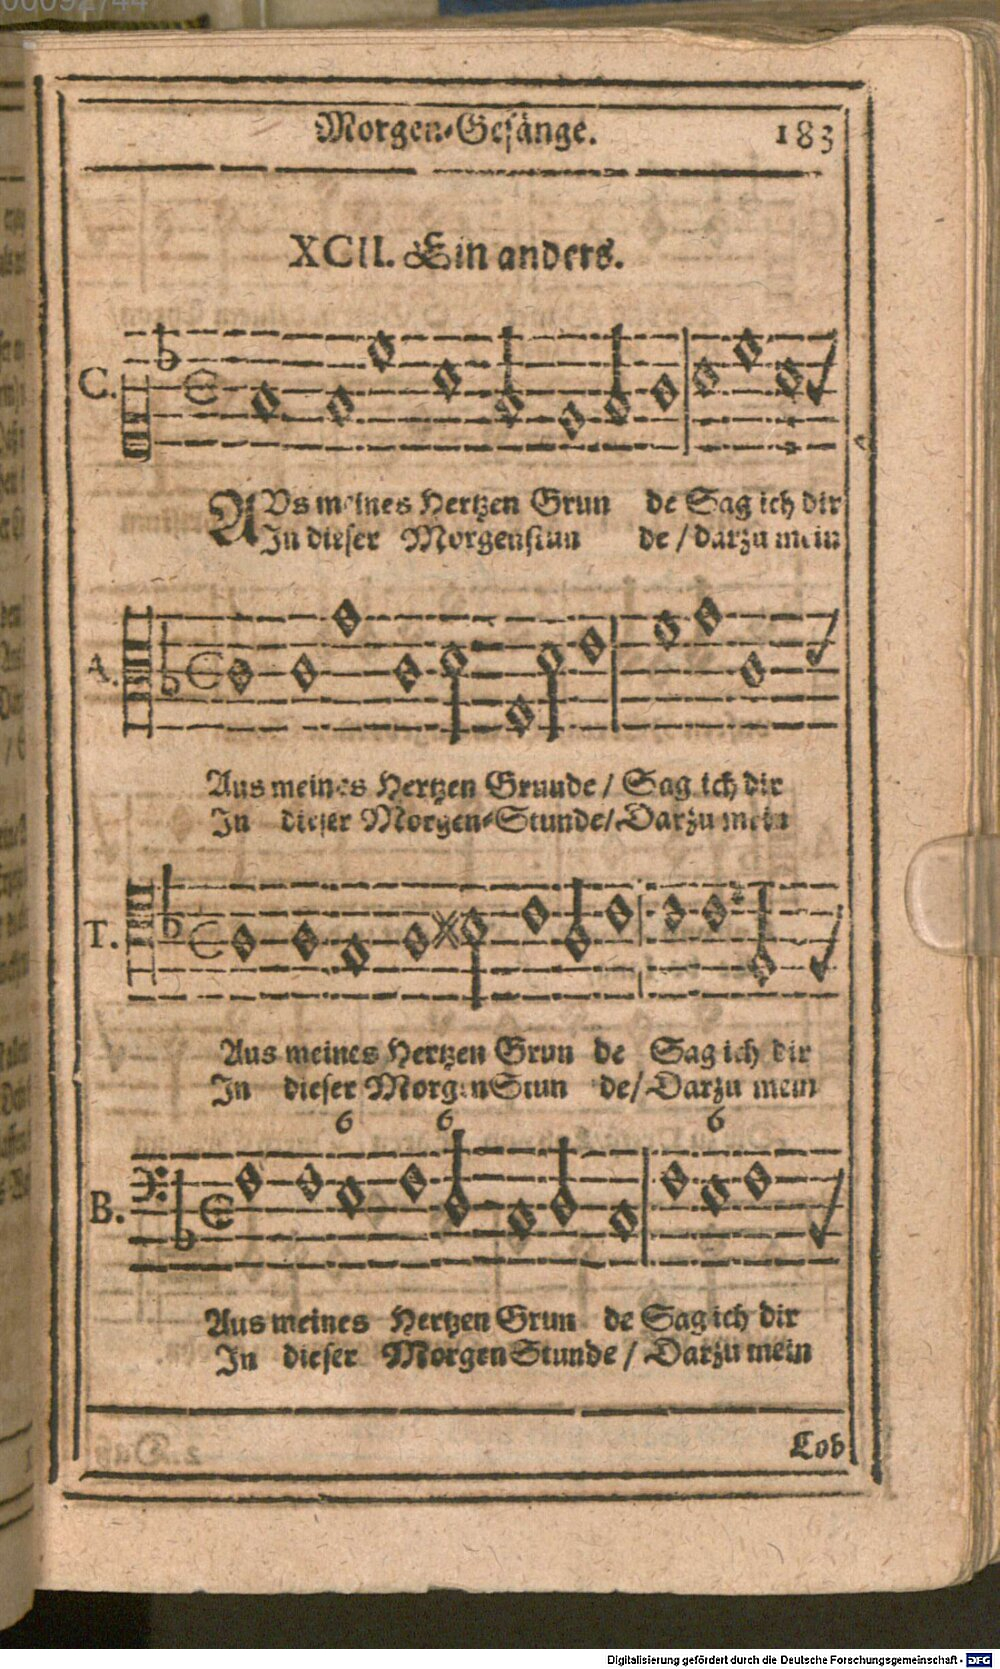 Morgen-Gesänge. 183
XCII. Ein anders.
C.
AUs meines Hertzen Grun de Sag ich dir
In dieser Morgenstun de / darzu mein
A.
Aus meines Hertzen Grunde / Sag ich dir
In dieser Morgen-Stunde/ Darzu mein
T.
Aus meines Hertzen Grun de Sag ich dir
In dieser Morgen Stun de/ Darzu mein
6 6 6
B.
Aus meines Hertzen Grun de Sag ich dir
In dieser Morgen Stunde / Darzu mein
Lob
Digitalisierung gefördert durch die Deutsche Forschungsgemeinschaft - DFG